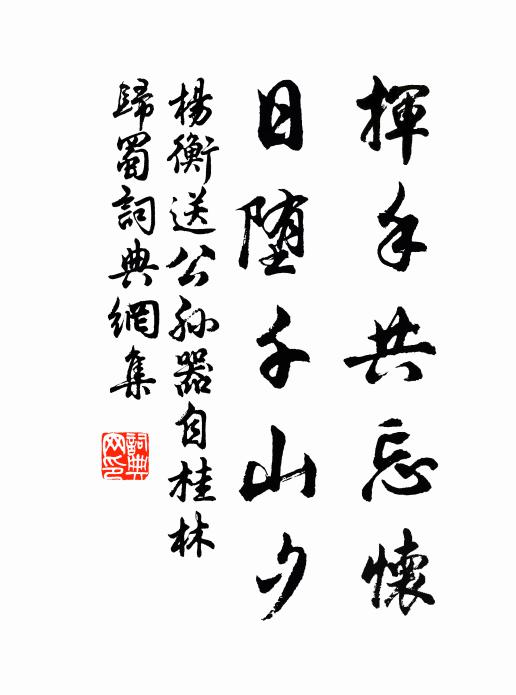 揮手共忘懷
日墮千山夕
楊衡送公孫器自桂林
歸蜀詞典網集
詞典網印